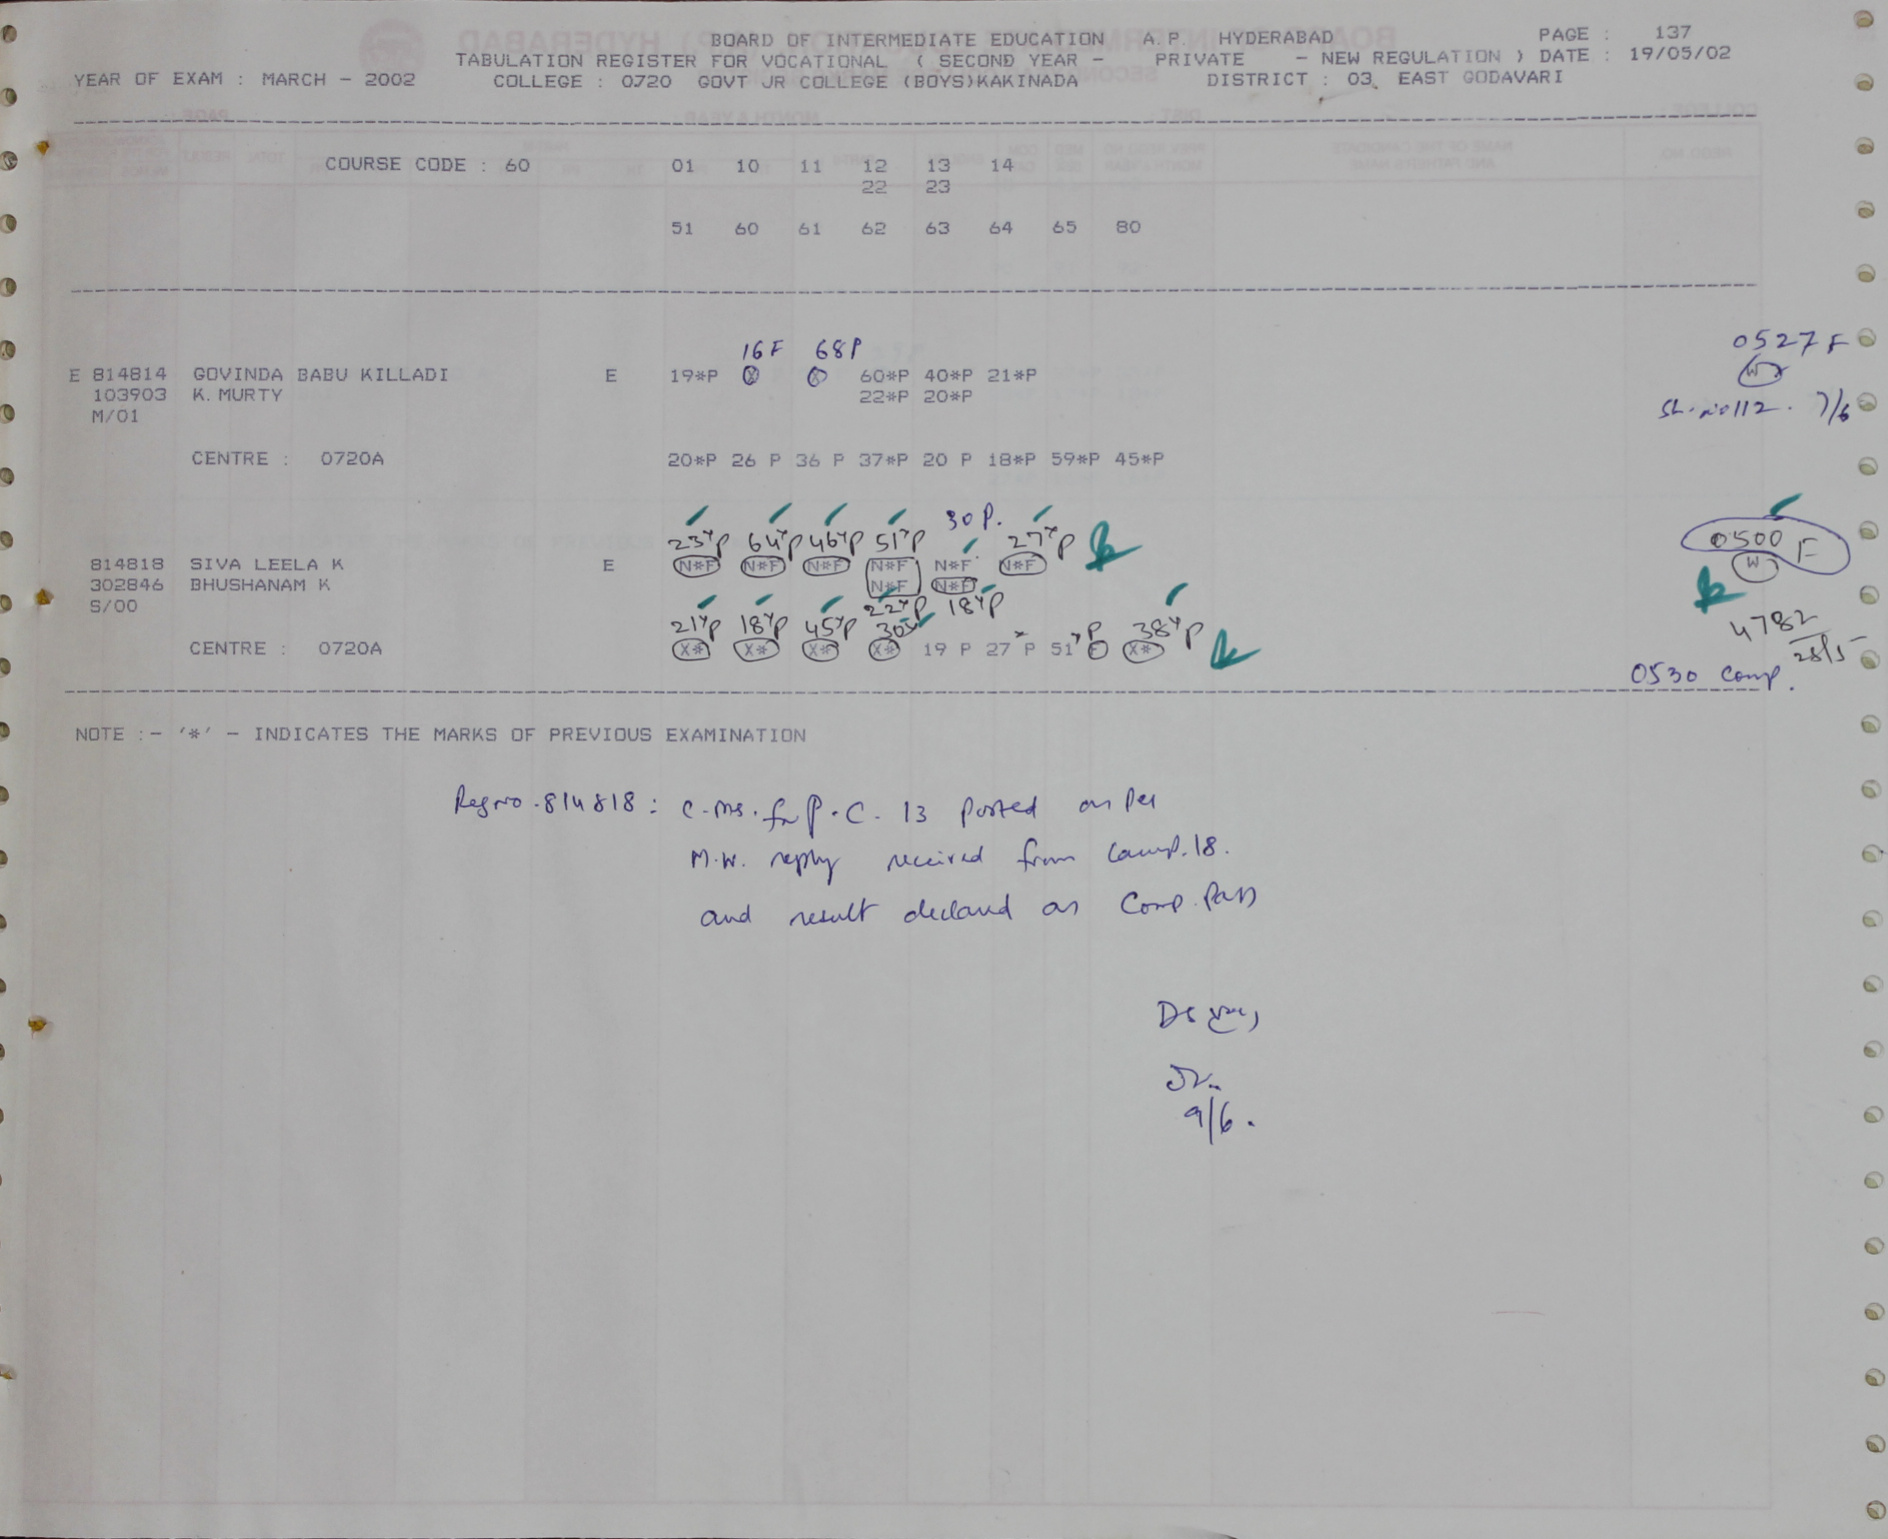 BOARD OF INTERMEDIATE EDUCATION A.P. HYDERABAD PAGE : 137
TABULATION REGISTER FOR VOCATIONAL ( SECOND YEAR - PRIVATE - NEW REGULATION ) DATE : 19/05/02
YEAR OF EXAM : MARCH - 2002 COLLEGE : 0720 GOVT JR COLLEGE (BOYS)KAKINADA DISTRICT : 03. EAST GODAVARI
COURSE CODE : 60 01 10 11 12 13 14
22 23
51 60 61 62 63 64 65 80
16F 68P 0527 F
E 814814 GOVINDA BABU KILLADI E 19*P X X 60*P 40*P 21*P W
103903 K.MURTY 22*P 20*P
M/01 7/6
CENTRE : 0720A 20*P 26 P 36 P 37*P 20 P 18*P 59*P 45*P
23*P 64*P 46*P 51*P 30P. 27*P 0500 F
814818 SIVA LEELA K E N*F N*F N*F N*F N*F N*F W
302846 BHUSHANAM K N*F N*F
S/00 22*P 18*P
21*P 18*P 45*P 30* P 38*P 4782
CENTRE : 0720A X* X* X* X* 19 P 27*P 51* F X* 28/5
0530 Comp.
NOTE :- '*' - INDICATES THE MARKS OF PREVIOUS EXAMINATION
Regno.814818: C.ms. for P.C. 13 posted as per
M.W. reply received from Camp.18.
and result declared as Comp. Pass
9/6.